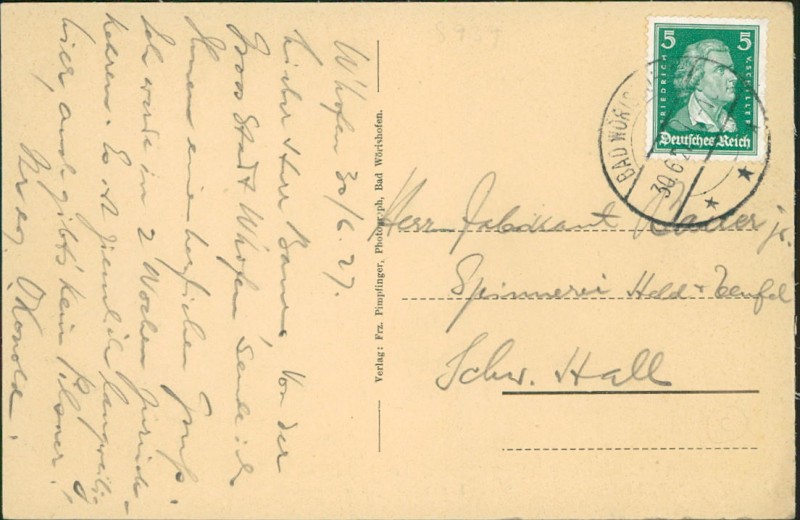 W'hofen 30/6.27.
Lieber Herr Bauer, Von der
Gross Stadt W'hofen sende ich
Ihnen einen herzlichen Gruß.
Ich werde in 2 Wochen zurück-
kehren. Es ist ziemlich langweilig
hier, auch gibt's kein Pilsner!
Konold.
Verlag: Frz. Pimpfinger, Photograph, Bad Wörishofen.
8937
5 5
FRIEDRICH V. SCHILLER
Deutsches Reich
BAD WÖRIS
30.6.2
Herrn Fabrikant jr.
Spinnerei Held & Teufel
Schw. Hall